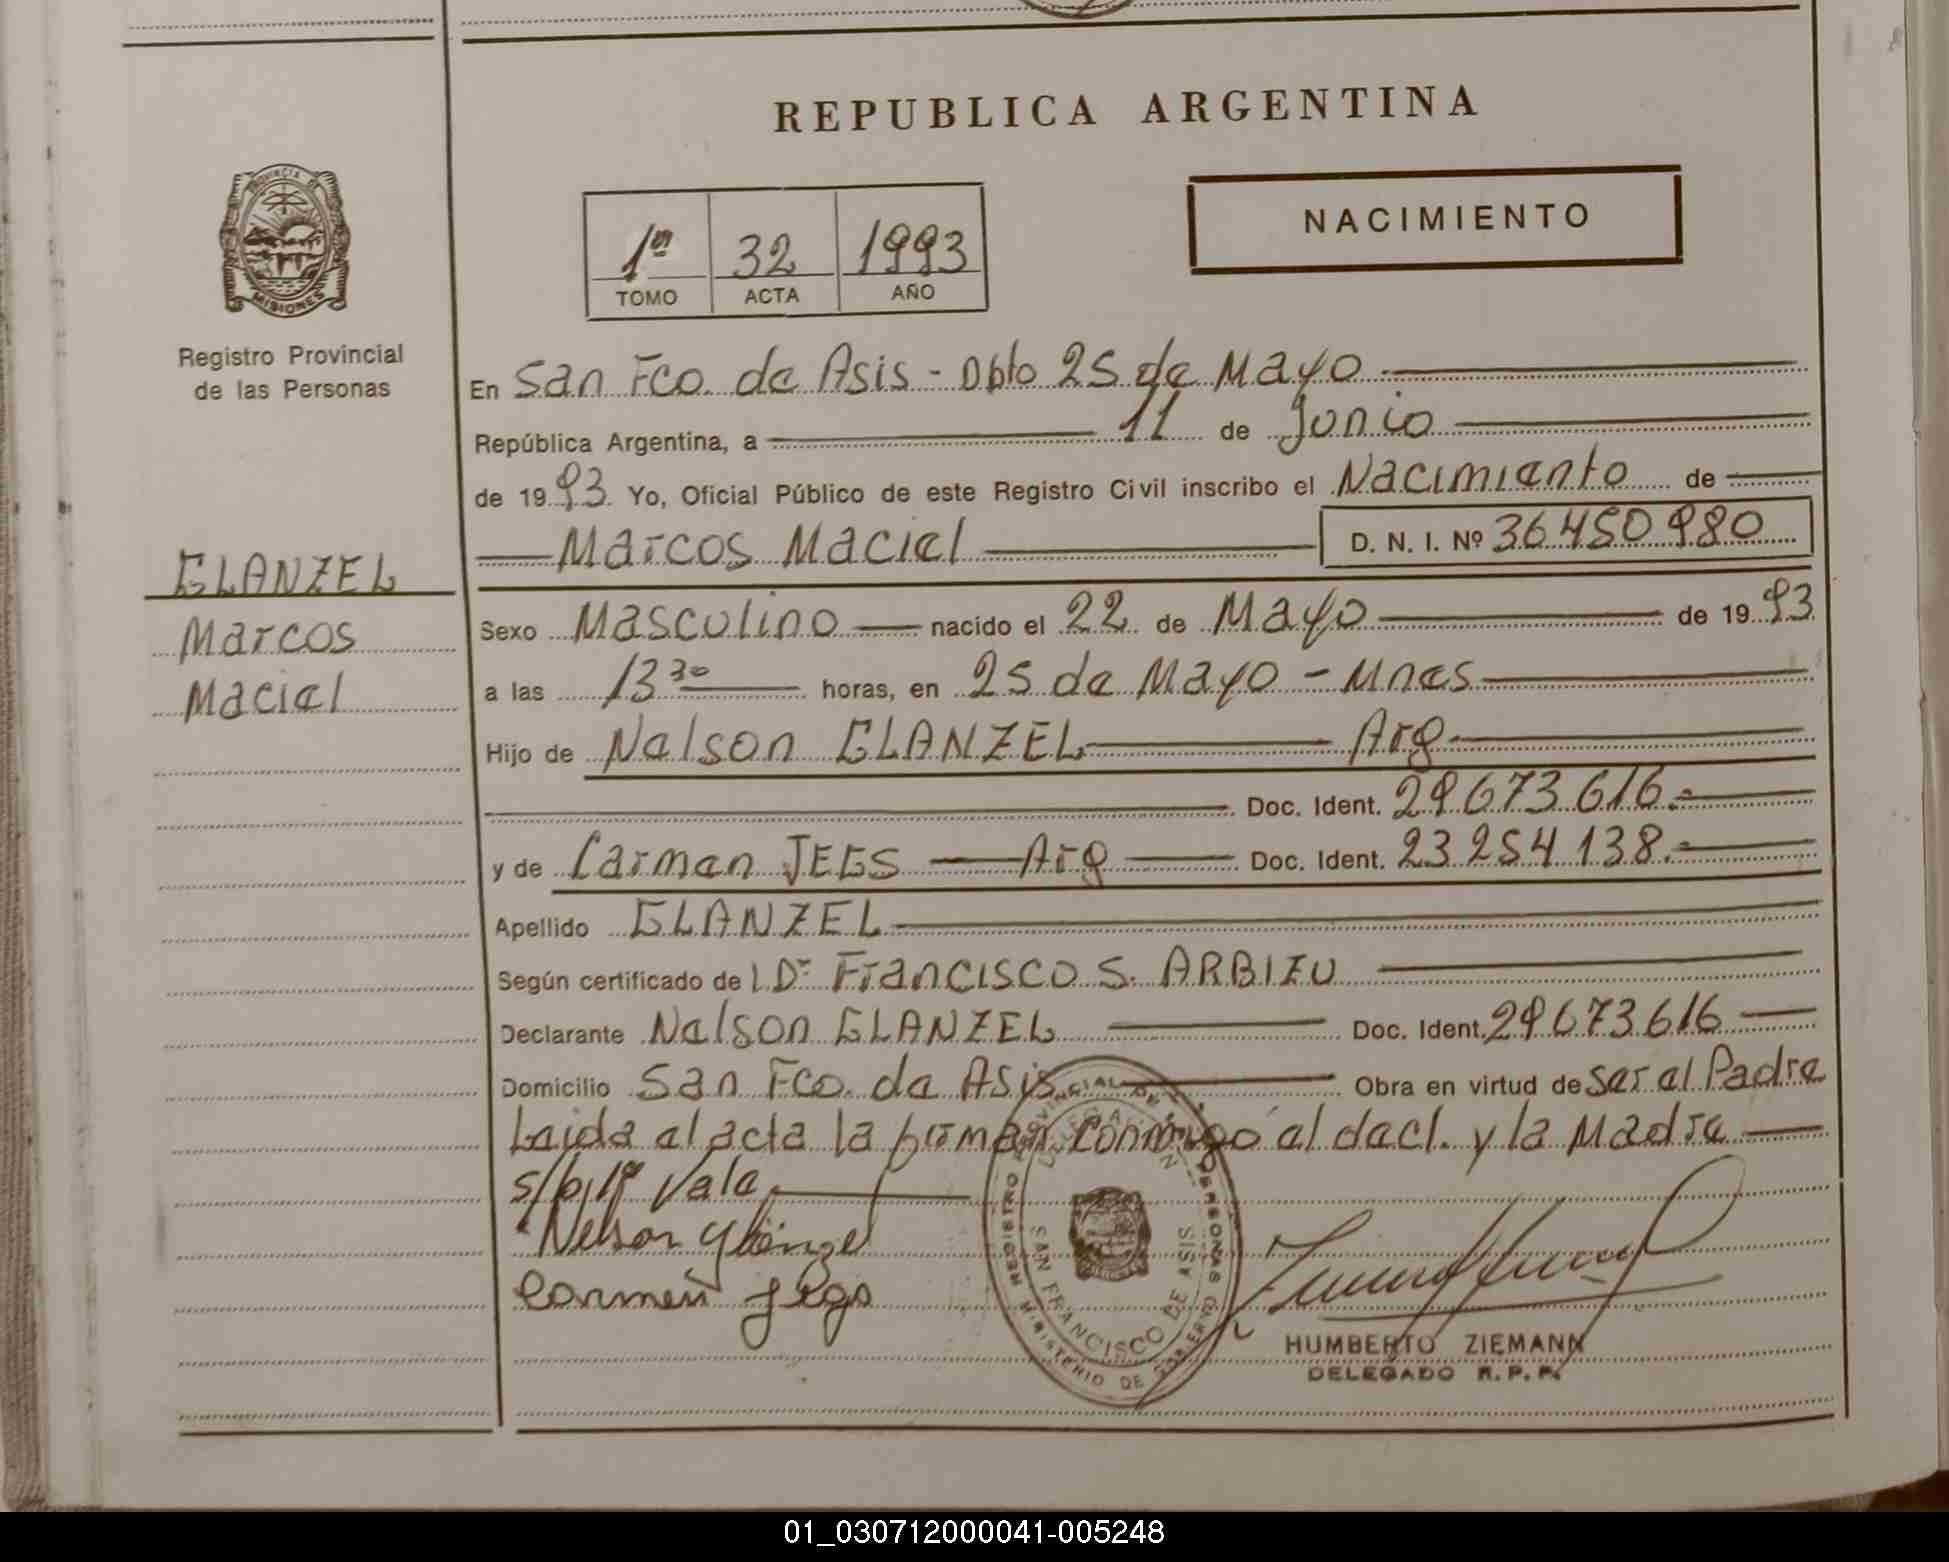 REPUBLICA ARGENTINA
PROVINCIA DE MISIONES
Registro Provincial
de las Personas
NACIMIENTO
1º 32 1993
TOMO ACTA AÑO
GLANZEL
Marcos
Maciel
En San Fco. de Asis - Dpto 25 de Mayo
República Argentina, a 11 de Junio
de 1993. Yo, Oficial Público de este Registro Civil inscribo el Nacimiento de
Marcos Maciel D. N. I. Nº 36450980
Sexo Masculino nacido el 22 de Mayo de 1993
a las 13 30 horas, en 25 de Mayo - Mnes
Hijo de Nelson GLANZEL Arg
Doc. Ident. 29673616.-
y de Carmen JEGS Arg Doc. Ident. 23254138.-
Apellido GLANZEL
Según certificado de Dr Francisco S. ARBIZU
Declarante Nelson GLANZEL Doc. Ident. 29673616
Domicilio San Fco. de Asis Obra en virtud de ser el Padre
Leida el acta la firman conmigo el decl. y la Madre
Vale
Nelson Glänzel
Carmen Jegs
REGISTRO PROVINCIAL DE LAS PERSONAS
MINISTERIO DE GOBIERNO
DELEGACION
SAN FRANCISCO DE ASIS
HUMBERTO ZIEMANN
DELEGADO R. P. P.
01_030712000041-005248